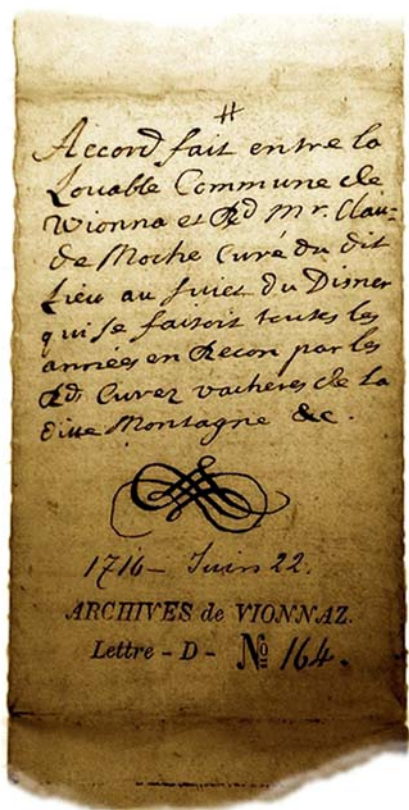 #
Accord fait entre la
Louable Commune de
Wionna et Rd Mr. Clau-
de Moche Curé du dit
Lieu au sujet du Disner
qui se faisoit toutes les
années en Recon par les
Rds Curez vacheres de la
ditte Montagne &c.
1716 - Juin 22.
ARCHIVES de VIONNAZ.
Lettre - D - No 164.